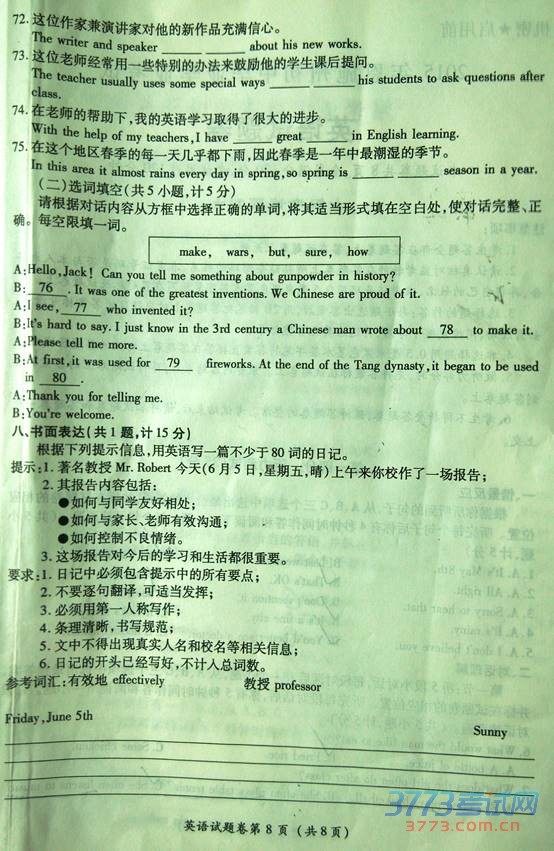 72. 这位作家兼演讲家对他的新作品充满信心。
The writer and speaker ______ ______ about his new works.
73. 这位老师经常用一些特别的办法来鼓励他的学生课后提问。
The teacher usually uses some special ways ______ ______ his students to ask questions after
class.
74. 在老师的帮助下,我的英语学习取得了很大的进步。
With the help of my teachers, I have ______ great ______ in English learning.
75. 在这个地区春季的每一天几乎都下雨,因此春季是一年中最潮湿的季节。
In this area it almost rains every day in spring, so spring is ______ ______ season in a year.
(二)选词填空(共5小题,计5分)
请根据对话内容从方框中选择正确的单词,将其适当形式填在空白处,使对话完整、正
确。每空限填一词。
make, wars, but, sure, how
A: Hello, Jack! Can you tell me something about gunpowder in history?
B: 76 . It was one of the greatest inventions. We Chinese are proud of it.
A: I see, 77 who invented it?
B: It's hard to say. I just know in the 3rd century a Chinese man wrote about 78 to make it.
A: Please tell me more.
B: At first, it was used for 79 fireworks. At the end of the Tang dynasty, it began to be used
in 80 .
A: Thank you for telling me.
B: You're welcome.
八、书面表达(共1题,计15分)
根据下列提示信息,用英语写一篇不少于80词的日记。
提示:1. 著名教授 Mr. Robert 今天(6月5日,星期五,晴)上午来你校作了一场报告;
2. 其报告内容包括:
●如何与同学友好相处;
●如何与家长、老师有效沟通;
●如何控制不良情绪。
3. 这场报告对今后的学习和生活都很重要。
要求:1. 日记中必须包含提示中的所有要点;
2. 不要逐句翻译,可适当发挥;
3. 必须用第一人称写作;
4. 条理清晰,书写规范;
5. 文中不得出现真实人名和校名等相关信息;
6. 日记的开头已经写好,不计入总词数。
参考词汇:有效地 effectively 教授 professor
Friday, June 5th Sunny
英语试题卷第8页(共8页)
3773考试网
3773.com.cn